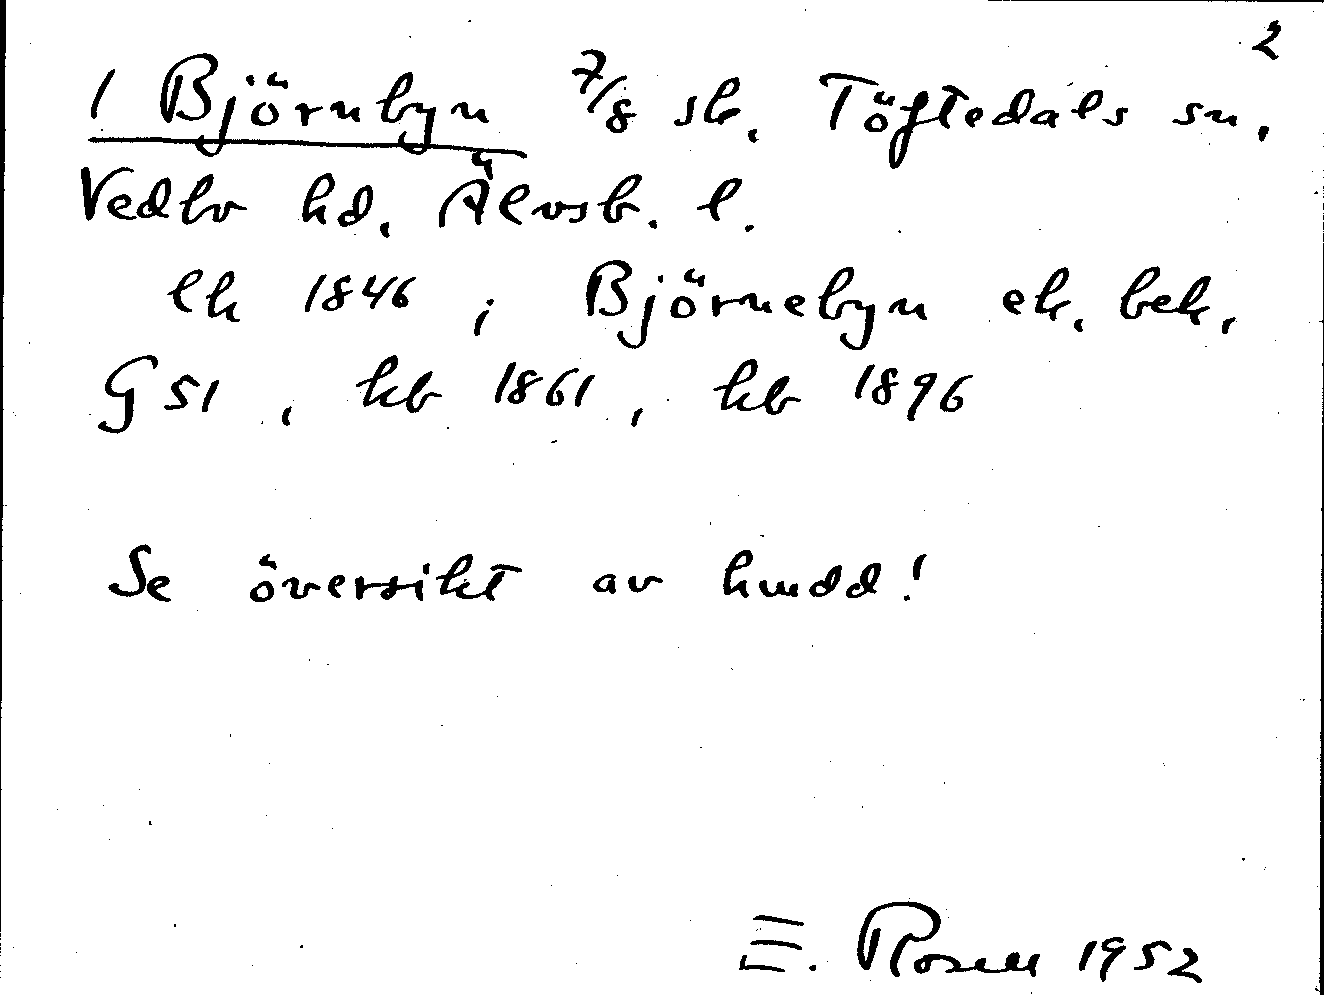 2
1 Björnbyn 7/8 sk. Töftedals sn.
Vedbo hd. Älvsb. l.
ek 1846 ; Björnebyn ek. bek.
G 51 , kb 1861 , kb 1896
Se översikt av hmdd!
E. Rosell 1952